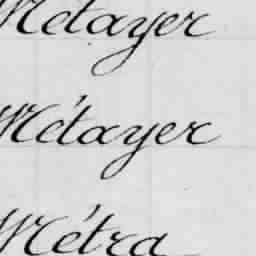 Métayer
Métayer
Métra